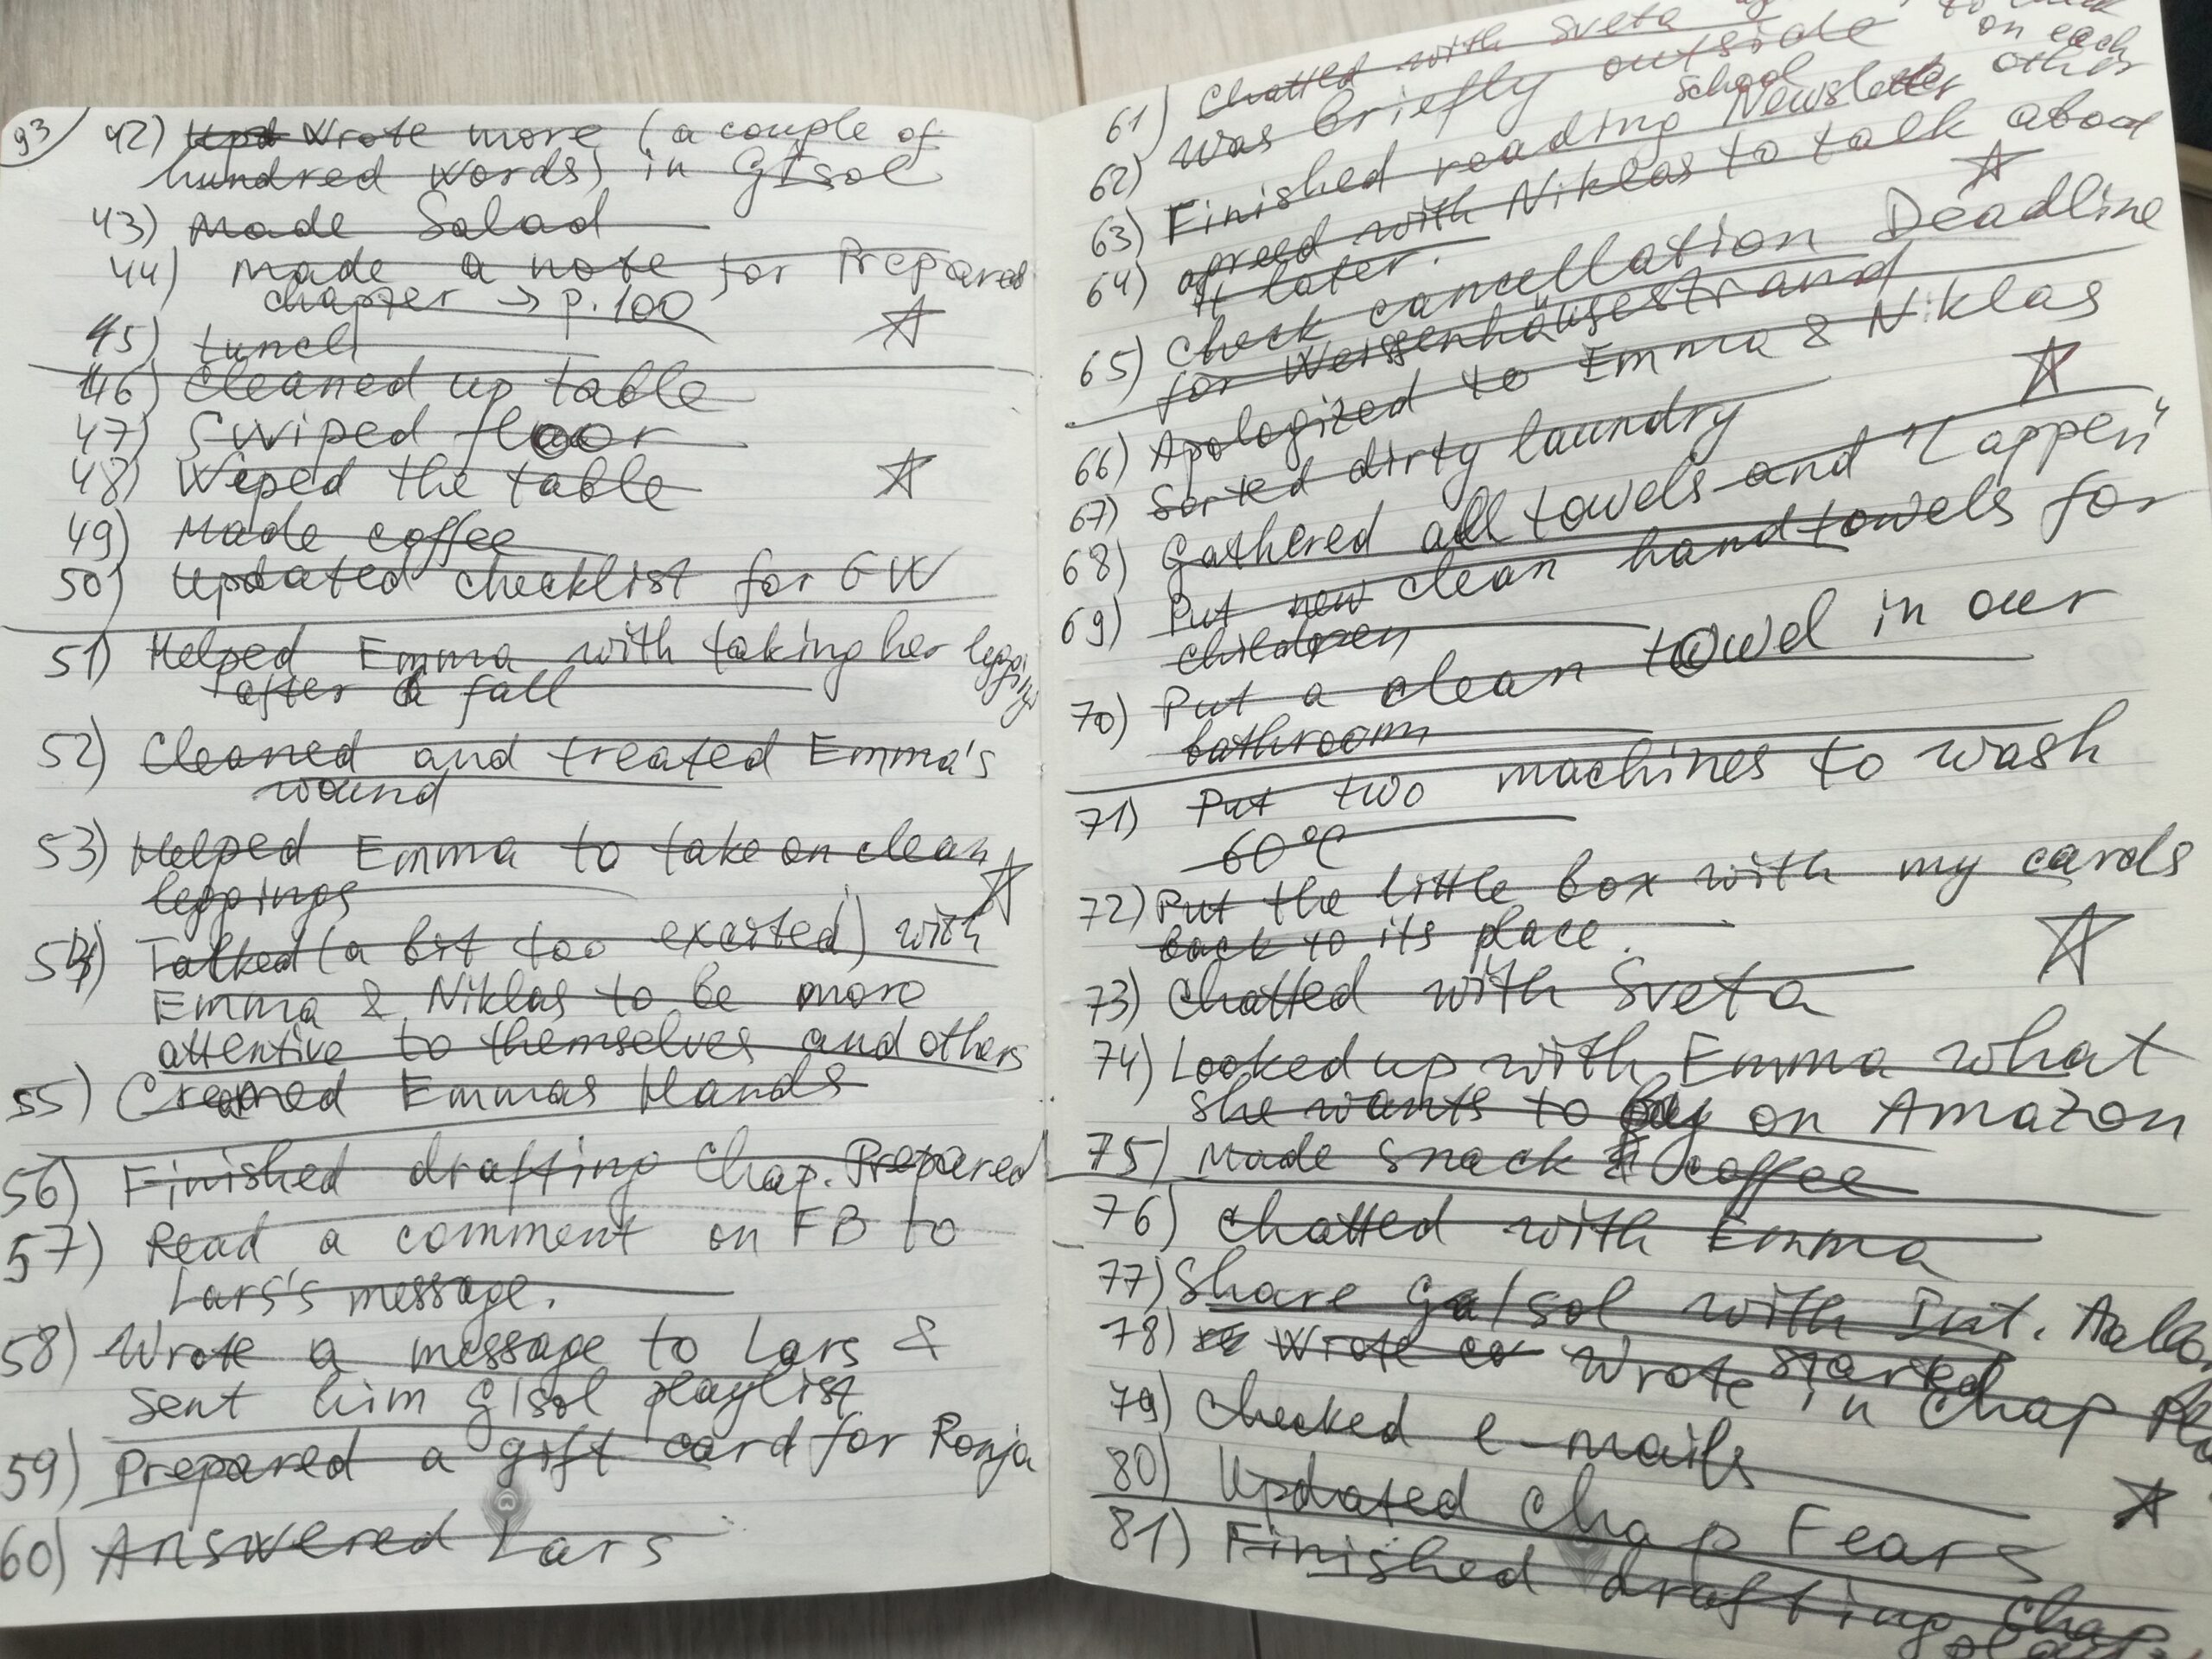 93
42) Upd Wrote more (a couple of
hundred words) in G1sol
43) Made Salad
44) Made a note for Prepared
chapter → p.100
45) Lunch
46) Cleaned up table
47) Swiped floor
48) Wiped the table
49) Made coffee
50) Updated checklist for GW
51) Helped Emma with taking her leggings
after a fall
52) Cleaned and treated Emma's
wound
53) Helped Emma to take on clean
leggings
54) Talked (a bit too excited) with
Emma & Niklas to be more
attentive to themselves and others
55) Creamed Emmas Hands
56) Finished drafting Chap. Prepared
57) Read a comment on FB to
Lars's message.
58) Wrote a message to Lars &
sent him G1sol playlist
59) Prepared a gift card for Ronja
60) Answered Lars
61) Chatted with Sveta to
on each
other
62) Was briefly outside
63) Finished reading school Newsletter
64) agreed with Niklas to talk about
it later.
65) Check cancellation Deadline
for Weissenhäusestrand
66) Apologized to Emma & Niklas
67) Sorted dirty laundry
68) Gathered all towels and "Lappen"
69) Put new clean handtowels for
children
70) Put a clean towel in our
bathroom
71) Put two machines to wash
60°C
72) Put the little box with my cards
back to its place.
73) Chatted with Sveta
74) Looked up with Emma what
she wants to buy on Amazon
75) Made snack & coffee
76) Chatted with Emma
77) Share G1sol with Int.
78) Wrote Wrote started in Chap
79) Checked e-mails
80) Updated Chap Fears
81) Finished drafting Chap